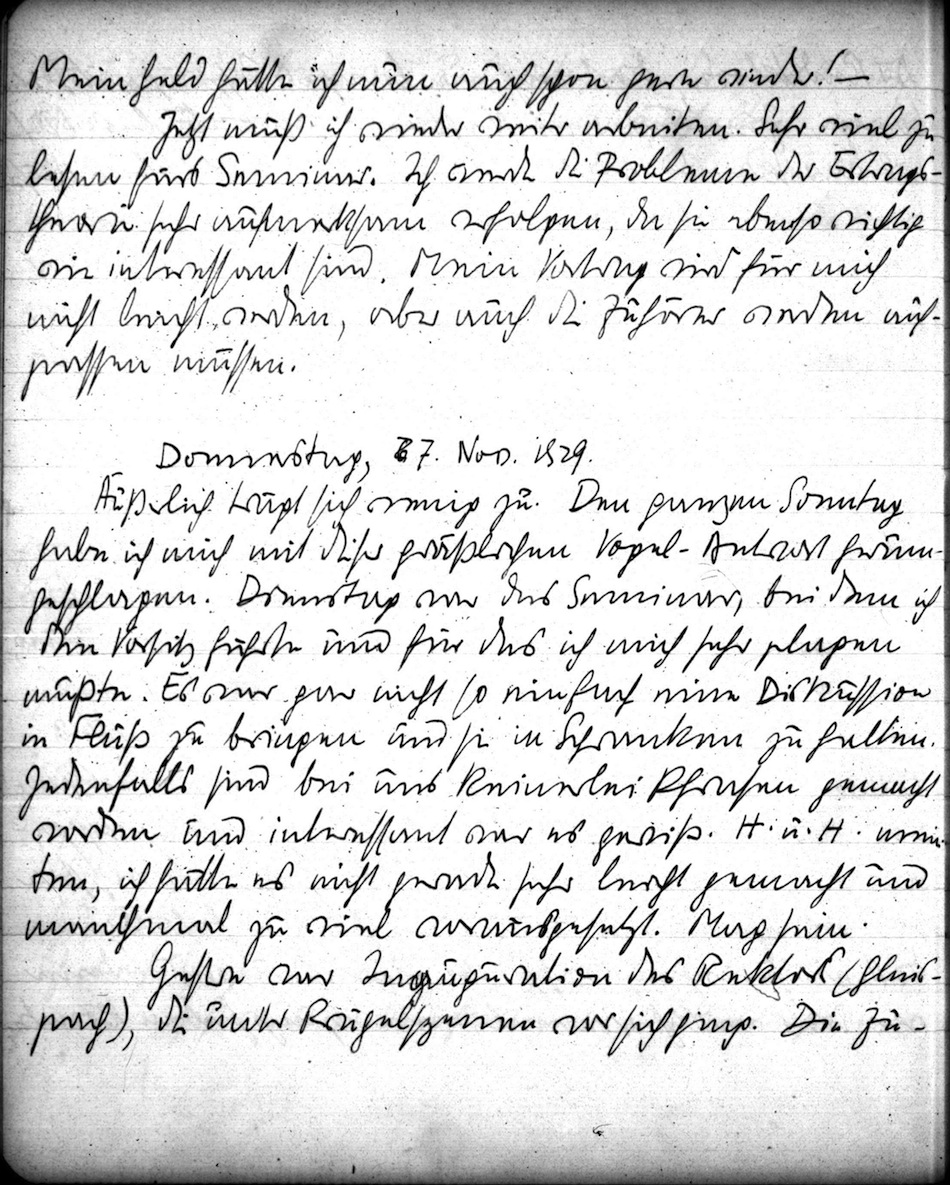 Mein Geld hätte ich nun auch schon gern wieder! —
Jetzt muß ich wieder weiter arbeiten. Sehr viel zu
lesen fürs Seminar. Ich werde die Probleme der Ertrags-
theorie sehr aufmerksam verfolgen, da sie ebenso wichtig
wie interessant sind. Mein Vortrag wird für mich
nicht leicht werden, aber auch die Zuhörer werden auf-
passen müssen.
Donnerstag, 7. Nov. 1929.
Äußerlich trägt sich wenig zu. Den ganzen Sonntag
habe ich mich mit dieser gräßlichen Vogel-Antwort herum-
geschlagen. Dienstag war das Seminar, bei dem ich
den Vorsitz führte und für das ich mich sehr plagen
mußte. Es war gar nicht so einfach eine Diskussion
in Fluß zu bringen und sie in Schranken zu halten.
Jedenfalls sind bei uns keinerlei Phrasen gemacht
worden und interessant war es gewiß. H. u. H. mein-
ten, ich hätte es nicht gerade sehr leicht gemacht und
manchmal zu viel vorausgesetzt. Mag sein.
Gestern war Inauguration des Rektors (Gleis-
pach), die unter Prügelszenen vor sich ging. Die Zu-